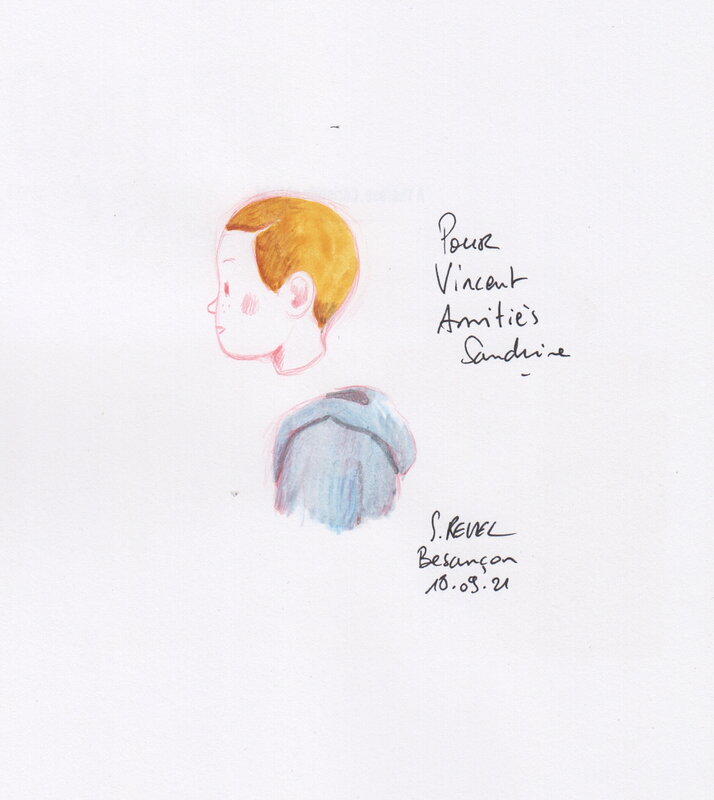 Pour
Vincent
Amitiés
Sandrine
S. REVEL
Besançon
18.09.21